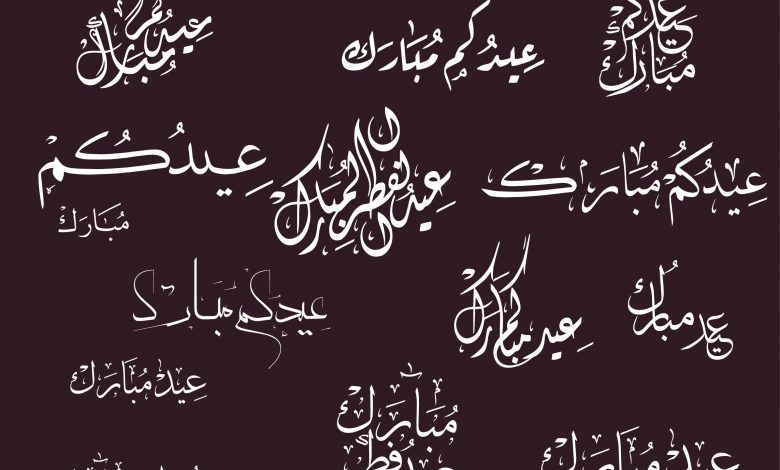 عِيدُكُم مُبَارَك
عِيدُكُم مُبَارَك
عِيدُكُم مُبَارَك
عِيدُكُمْ
مُبَارَكْ
عِيدُ الفِطرِ المُبَارَك
عِيدُكُمْ مُبَارَكْ
عِيدكم مبَارك
عِيدكم مبَارَك
عِيد مبَارُك
عِيْدْ مُبَارَكْ
مُبَارَكْ
عِيدُ مُبَارَكْ